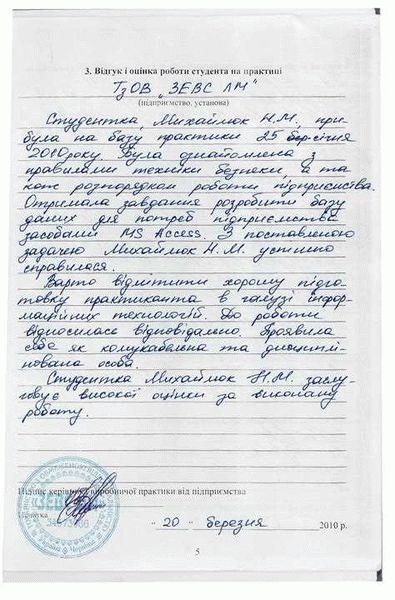 3. Відгук і оцінка роботи студента на практиці
ТзОВ „ЗЕВС ЛМ"
(підприємство, установа)
Студентка, Михаймюк Н.М., при-
була на базу практики 25 січня
2010 року. Була ознайомлена з
правилами техніки безпеки, а та
кож розпорядком роботи підприємства.
Отримала завдання розробити базу
даних для потреб підприємства
засобами MS Access. З поставленою
задачею Михаймюк Н.М. успішно
справилася.
Варто відмітити хорошу підго-
товку практиканта в галузі інфор-
маційних технологій. До роботи
відносилась відповідально. Проявила
себе як комунікабельна та дисциплі-
нована особа.
Студентка Михаймюк Н.М. заслу-
говує високої оцінки за виконану
роботу.
Підпис керівника виробничої практики від підприємства
"20" березня 2010 р.
5